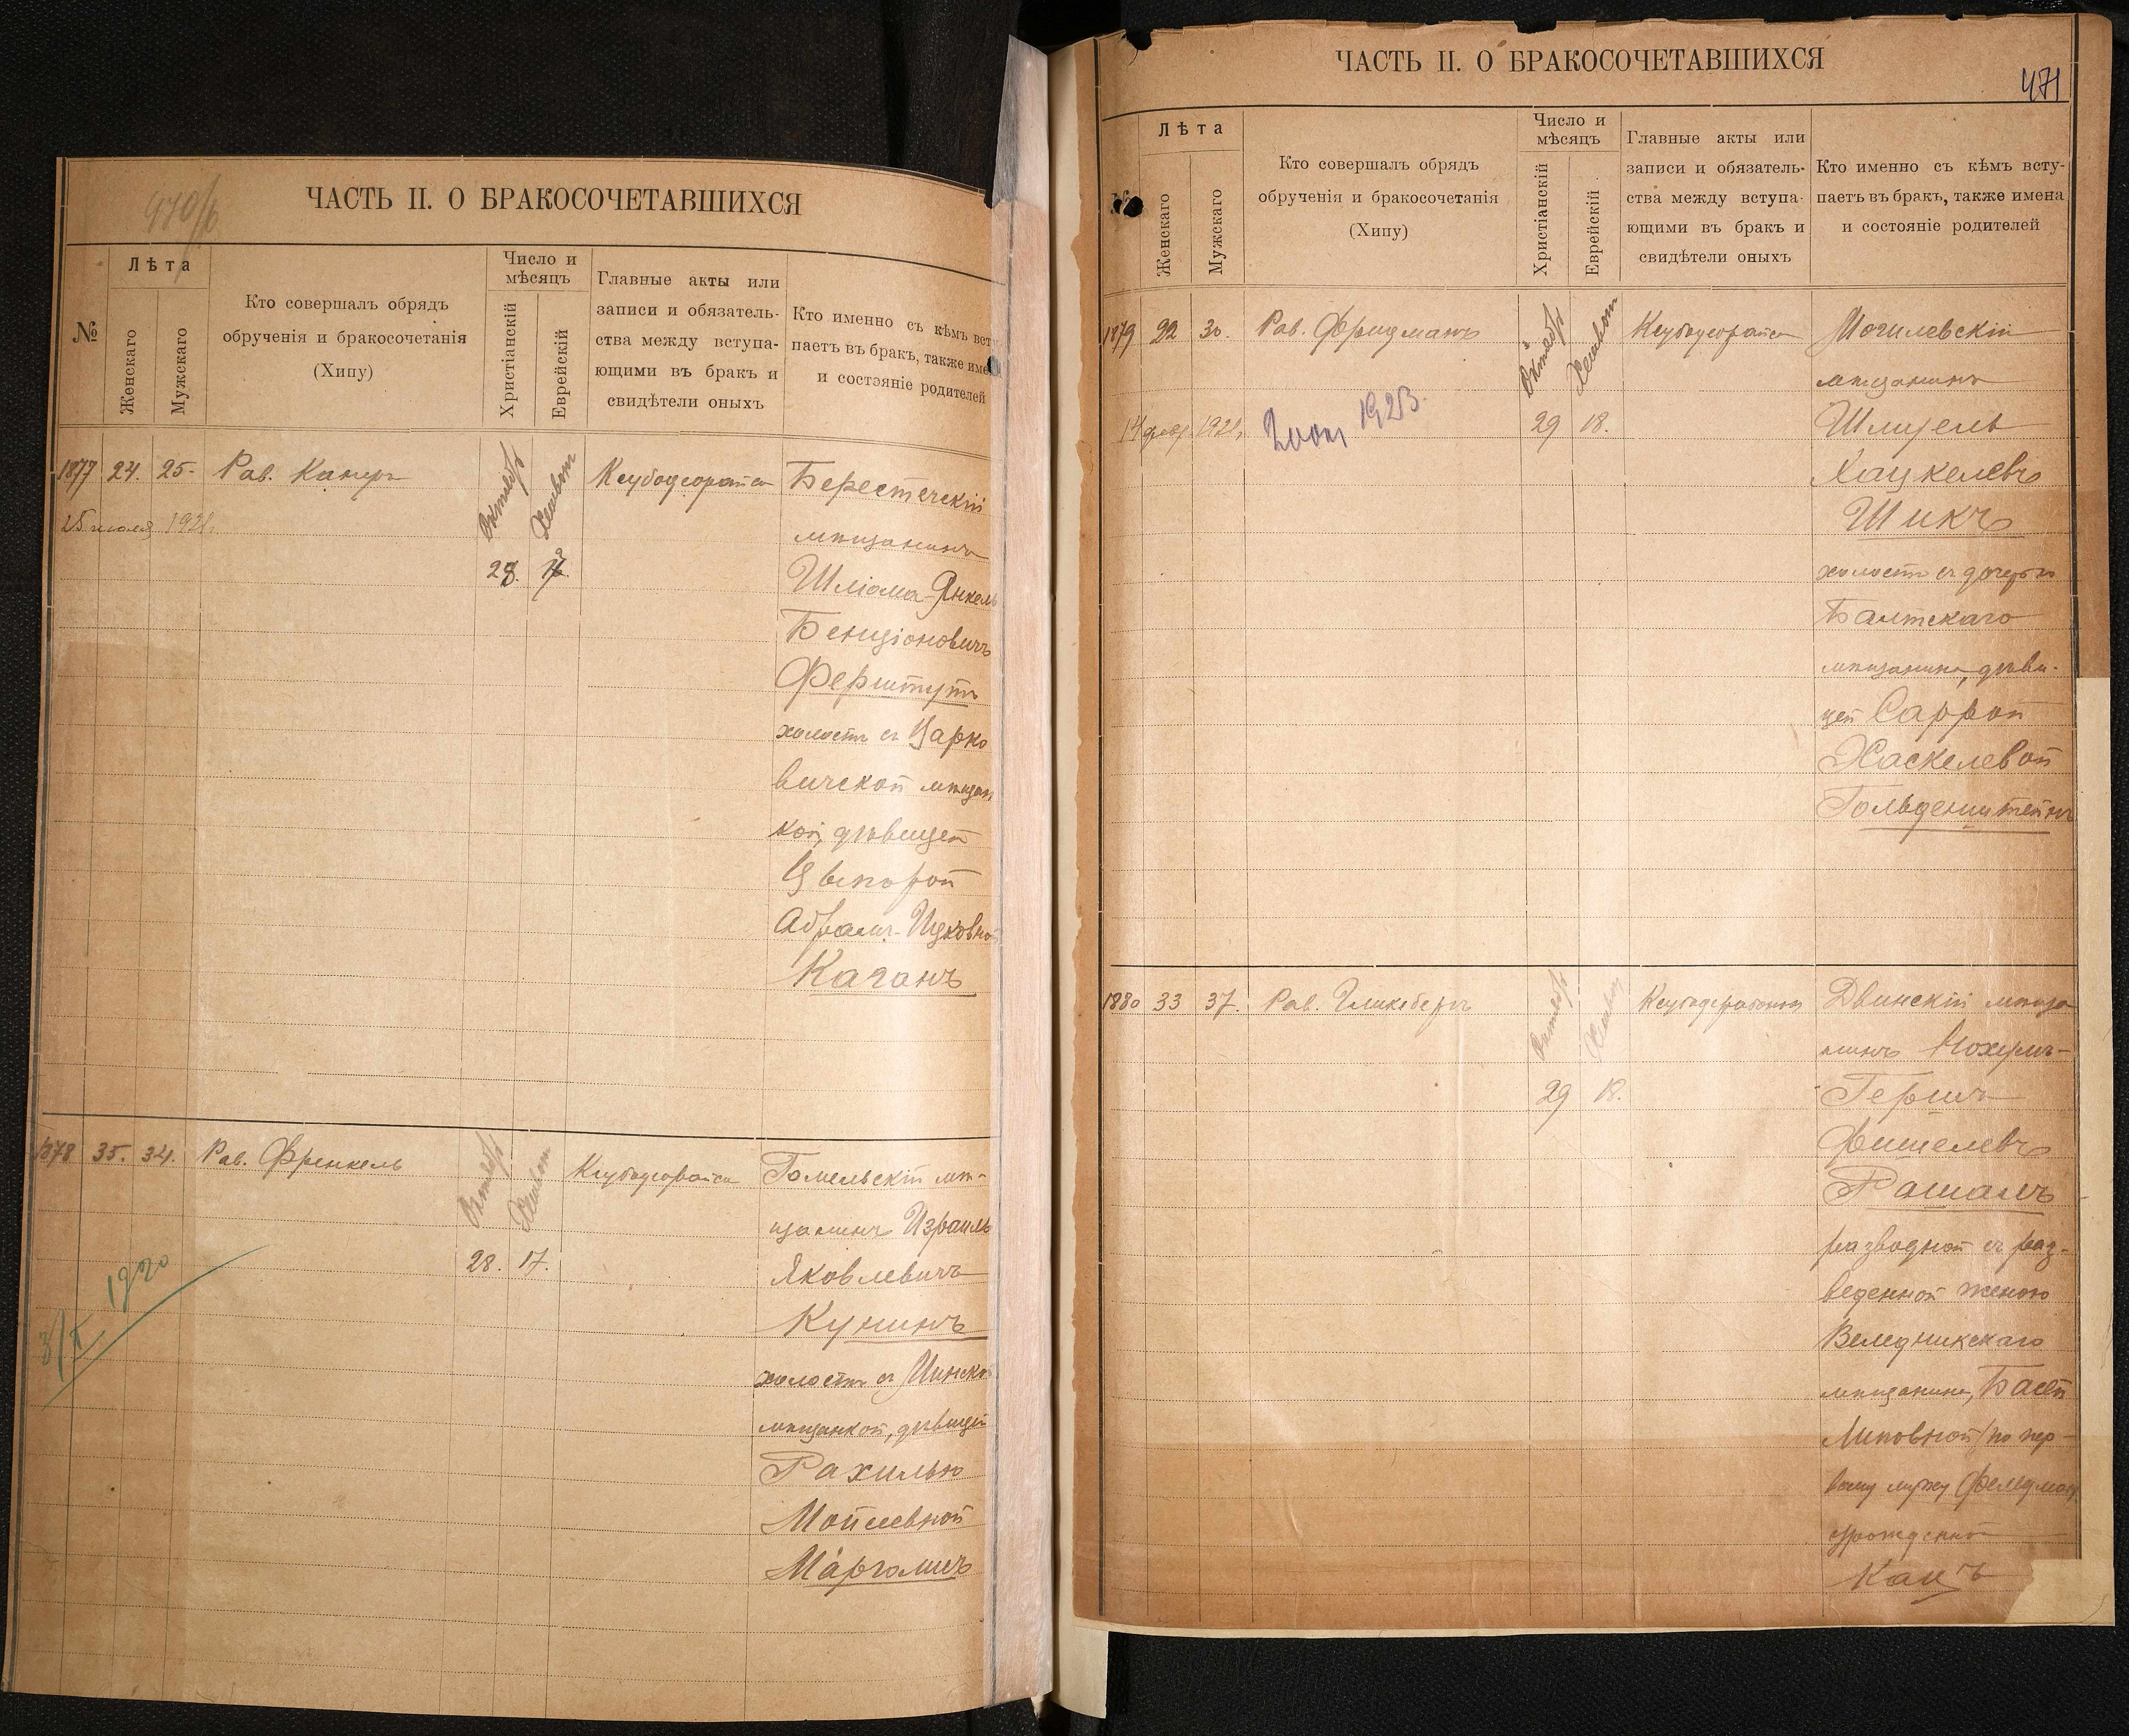 470/б
ЧАСТЬ II. О БРАКОСОЧЕТАВШИХСЯ
№
Лѣта
Женскаго
Мужскаго
Кто совершалъ обрядъ
обрученія и бракосочетанія
(Хипу)
Число и
мѣсяцъ
Христіанскій
Еврейскій
Главные акты или
записи и обязатель-
ства между вступа-
ющими въ бракъ и
свидѣтели оныхъ
Кто именно съ кѣмъ вст
паетъ въ бракъ, также име
и состояніе родителей
1877 24. 25. Рав. Канеръ Октябрь Хешвот Кеубодеорайса Берестечскій
мѣщанинъ
28.
Шліома-Янкель
Бенціоновичъ
Ферштутъ
холостъ съ Царко
вичской мѣщан
кой, дѣвицей
Цыпорой
Абрамъ-Ицковной
Каганъ
1878 35. 34. Рав. Френкель Октябрь Хешвот Кеубодеорайса Гомельскій мѣ-
щанинъ Израиль
28. 17. Яковлевичъ
Кунинъ
1920
холостъ съ Минской
мѣщанкой, дѣвицей
Рахилью
Мойсеевной
Марголисъ
ЧАСТЬ II. О БРАКОСОЧЕТАВШИХСЯ
471
Лѣта
Женскаго
Мужскаго
Кто совершалъ обрядъ
обрученія и бракосочетанія
(Хипу)
Число и
мѣсяцъ
Христіанскій
Еврейскій
Главные акты или
записи и обязатель-
ства между вступа-
ющими въ бракъ и
свидѣтели оныхъ
Кто именно съ кѣмъ всту-
паетъ въ бракъ, также имена
и состояніе родителей
1879 22 30. Рав. Фридманъ Октябрь Хешвот Кеубодеорайса Могилевскій
мѣщанинъ
1923.
29 18. Шмуель
Хацкелевъ
Шикъ
холостъ съ дочерью
Балтскаго
мѣщанина, дѣви-
цей Саррой
Хаскелевой
Гольденштейнъ
1880 33 37. Рав. Гликсбергъ Октябрь Хешвот Двинскій мѣща
нинъ Нохумъ-
29 18. Гершъ
Фишелевъ
Рашалъ
разводной съ раз-
веденной женою
Веледникскаго
мѣщанина, Басей
по пер-
вому мужу Фельдман
урожденной
Кацъ